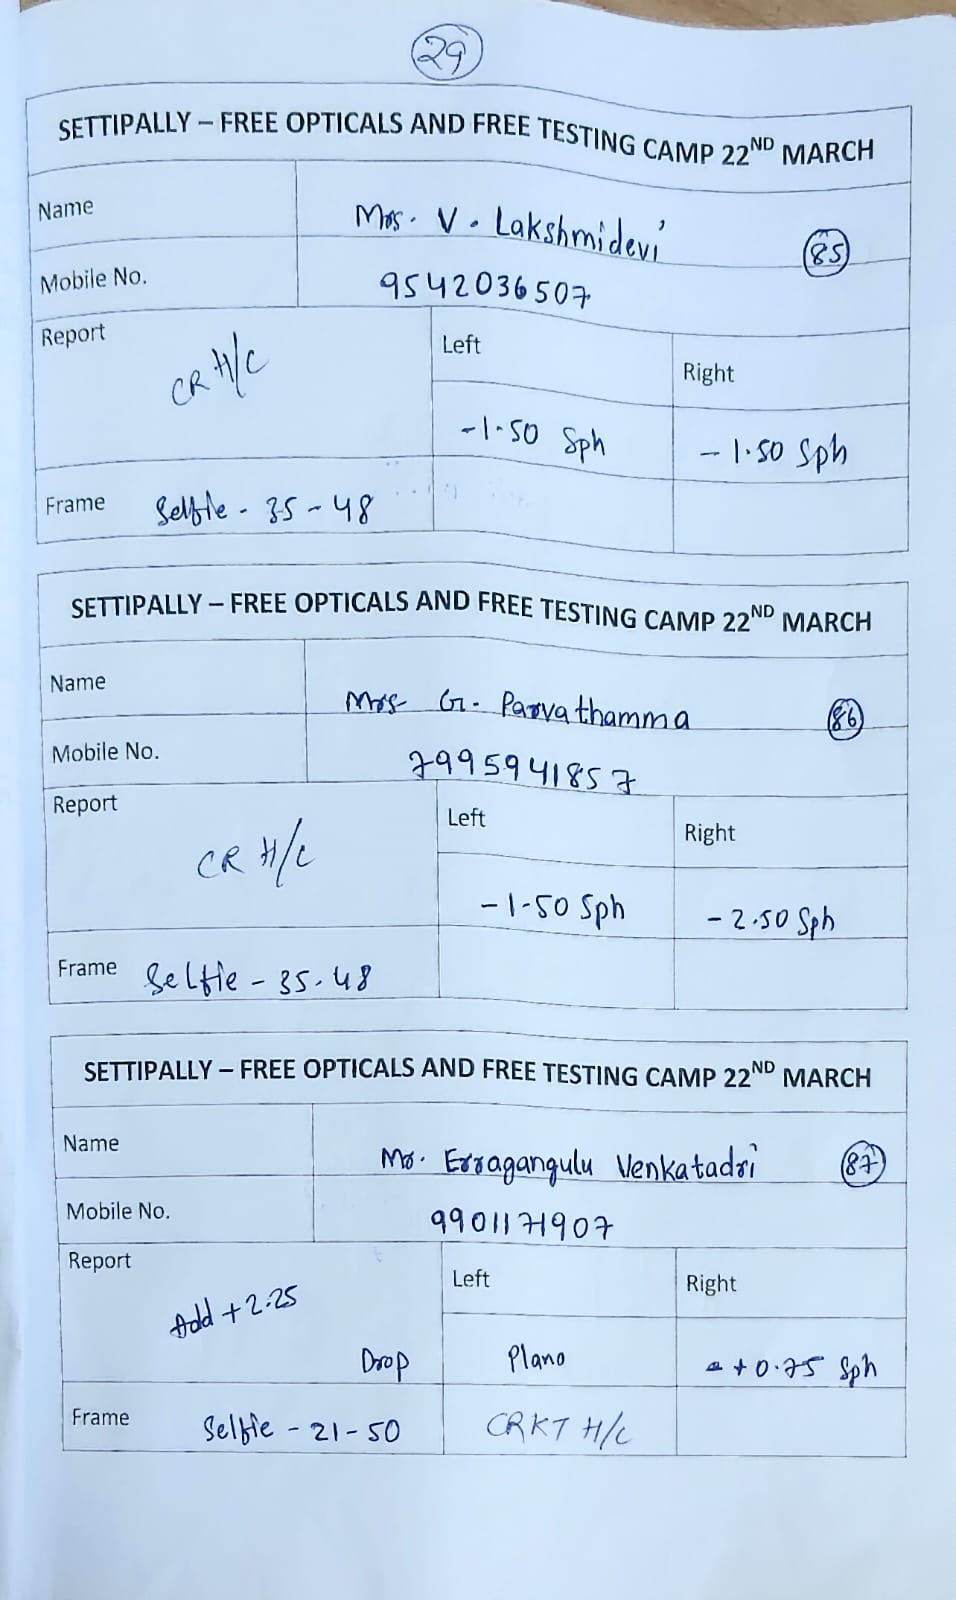 29
SETTIPALLY – FREE OPTICALS AND FREE TESTING CAMP 22ND MARCH
Name Mrs. V. Lakshmidevi 85
Mobile No. 9542036507
Report CR H/C Left Right
-1.50 Sph -1.50 Sph
Frame Selfie - 35-48
SETTIPALLY – FREE OPTICALS AND FREE TESTING CAMP 22ND MARCH
Name Mrs G. Parvathamma 86
Mobile No. 7995941857
Report CR H/C Left Right
-1.50 Sph -2.50 Sph
Frame Selfie - 35-48
SETTIPALLY – FREE OPTICALS AND FREE TESTING CAMP 22ND MARCH
Name Mr. Erragangulu Venkatadri 87
Mobile No. 9901171907
Report Left Right
Add +2.25
Drop Plano +0.75 Sph
Frame Selfie - 21-50 CRKT H/C